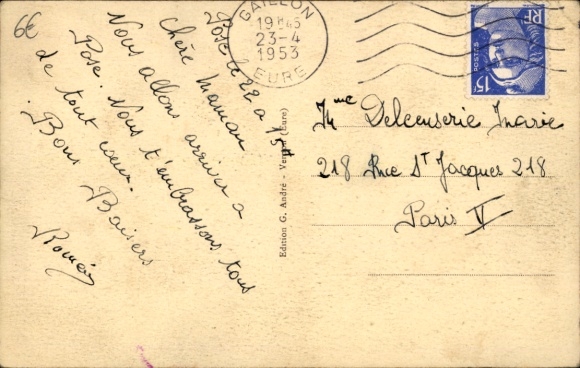 6€
GAILLON
19H45
23-4
1953
EURE
RF
POSTES
15F
Pose le 22 a 15H
Chère Maman
Nous allons arriver a
Pose. Nous t'embrassons tous
de tout cœur.
Bons Baisers
Edition G. André - (Eure)
Mme Delcenserie Marie
218 Rue St Jacques 218
Paris V